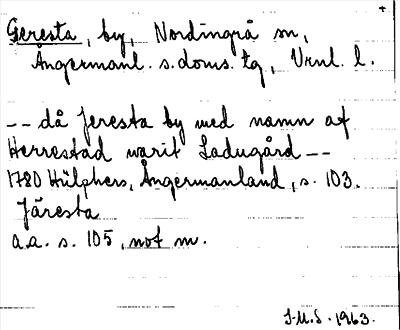 Geresta, by, Nordingrå sn,
Ångermanl. s. doms. tg, Vrnl. l.
-- då Jeresta by med namn af
Herrestad warit Ladugård --
1780 Hülphers, Ångermanland, s. 103.
Järesta
a.a. s. 105, not m.
J.M.S. 1963.